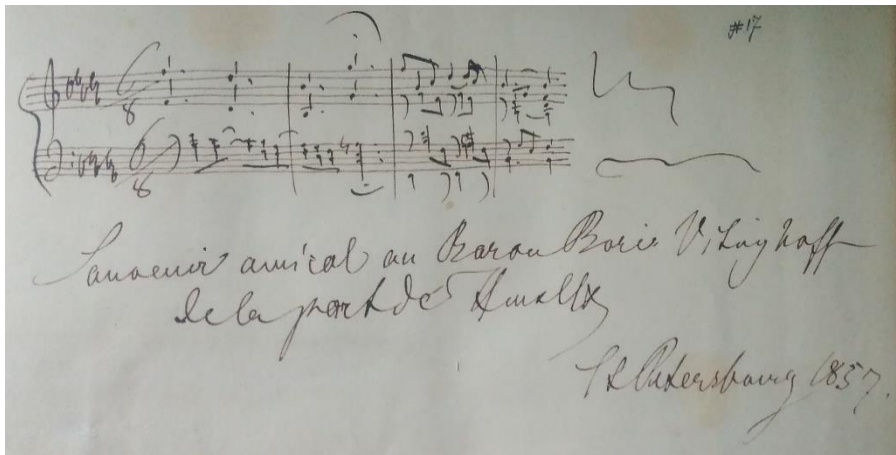 #17
Souvenir amical au Baron Boris Vitinghoff
de la part de
St Petersbourg 1857.